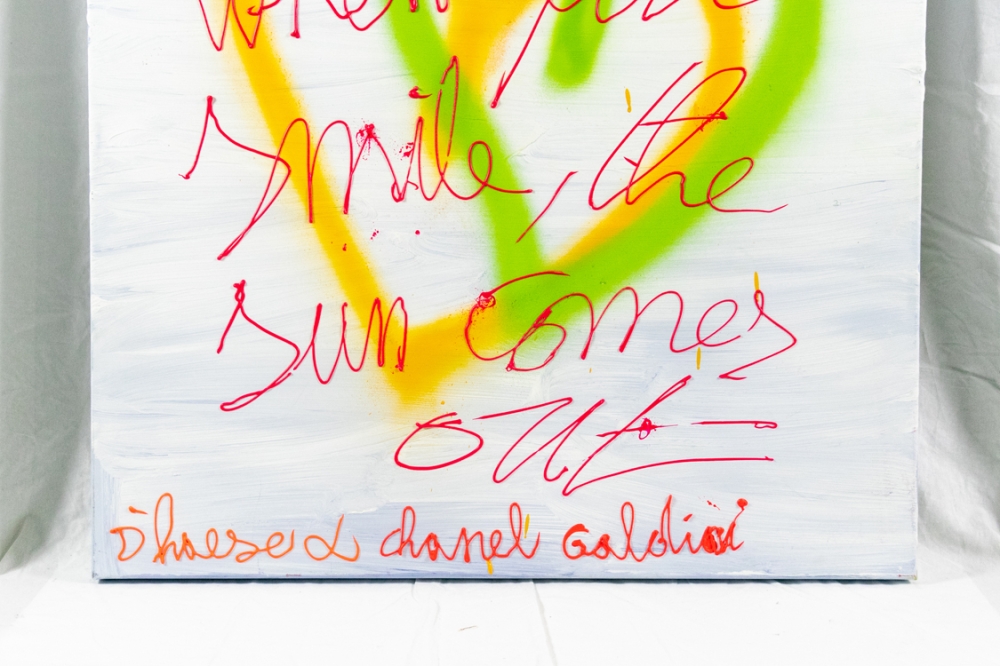 When you
smile, the
sun comes
out
D'haese & chanel Galdini